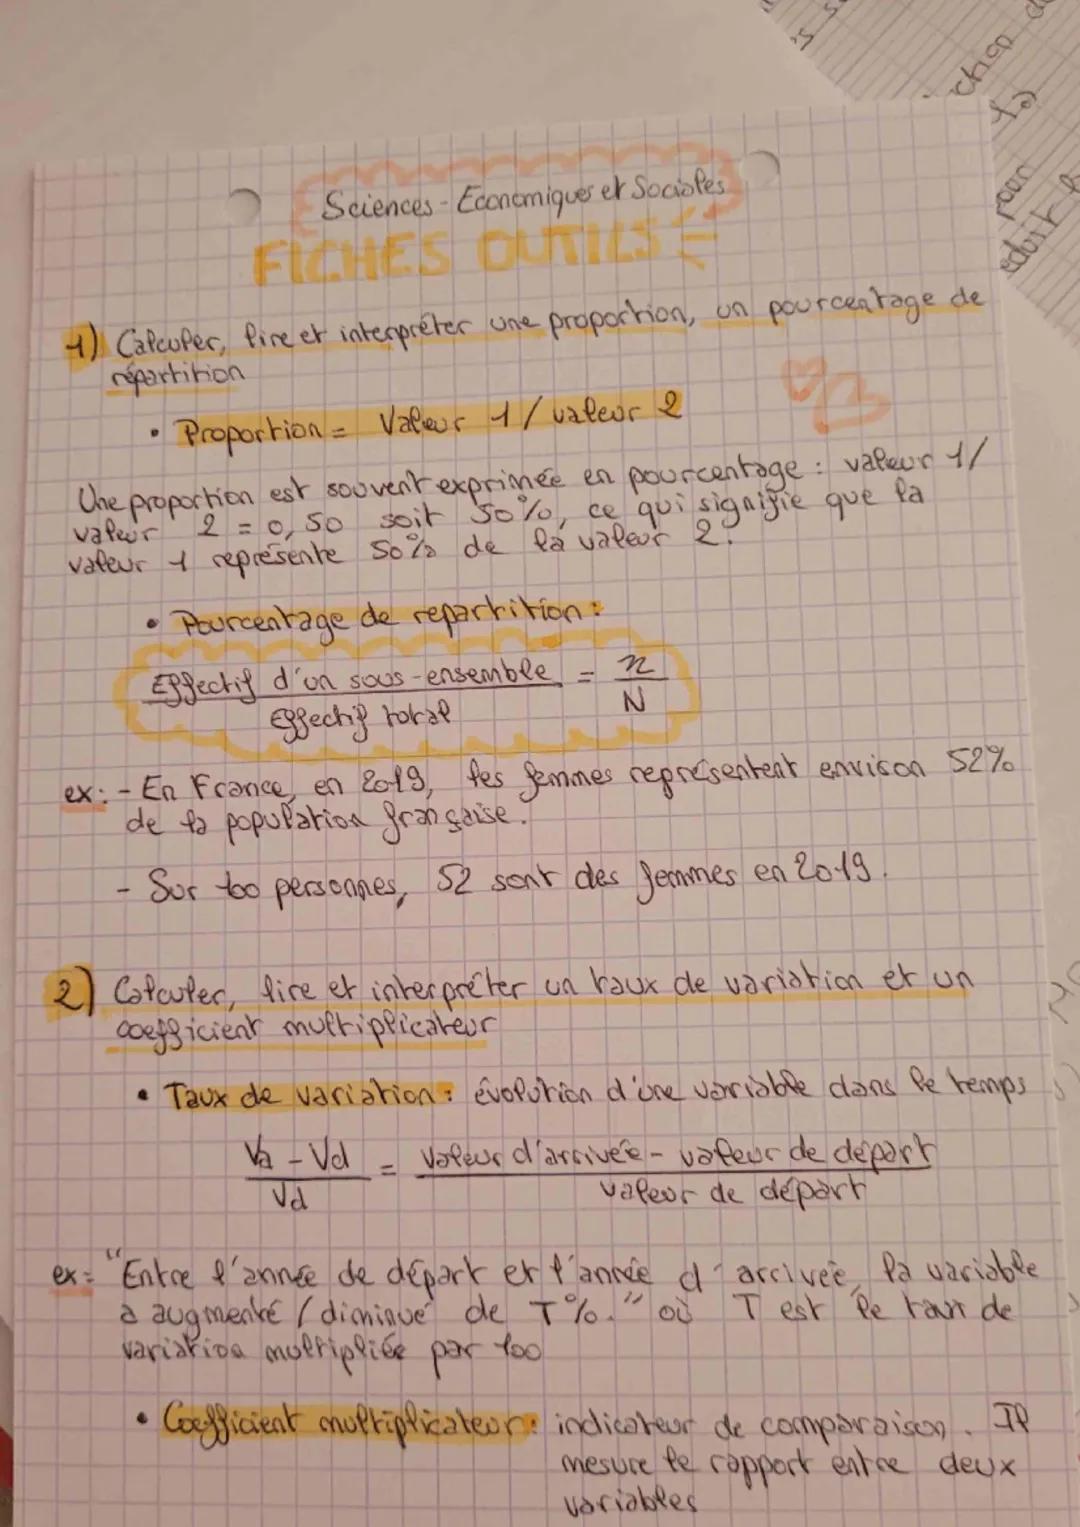 Sciences - Economiques et Sociales
FICHES OUTILS
1) Calculer, lire et interpréter une proportion, un pourcentage de
répartition
• Proportion = Valeur 1 / valeur 2
Une proportion est souvent exprimée en pourcentage : valeur 1/
valeur 2 = 0,50 soit 50%, ce qui signifie que la
valeur 1 représente 50% de la valeur 2.
• Pourcentage de repartition :
Effectif d'un sous-ensemble = n
Effectif total N
ex: - En France, en 2019, les femmes représentent environ 52%
de la population française.
- Sur 100 personnes, 52 sont des femmes en 2019.
2) Calculer, lire et interpréter un taux de variation et un
coefficient multiplicateur
• Taux de variation : évolution d'une variable dans le temps
Va - Vd = valeur d'arrivée - valeur de départ
Vd valeur de départ
ex: "Entre l'année de départ et l'année d'arrivée, la variable
a augmenté / diminué de T%." où T est le taux de
variation multipliée par 100
• Coefficient multiplicateur : indicateur de comparaison. Il
mesure le rapport entre deux
variables
ction
par
éduit